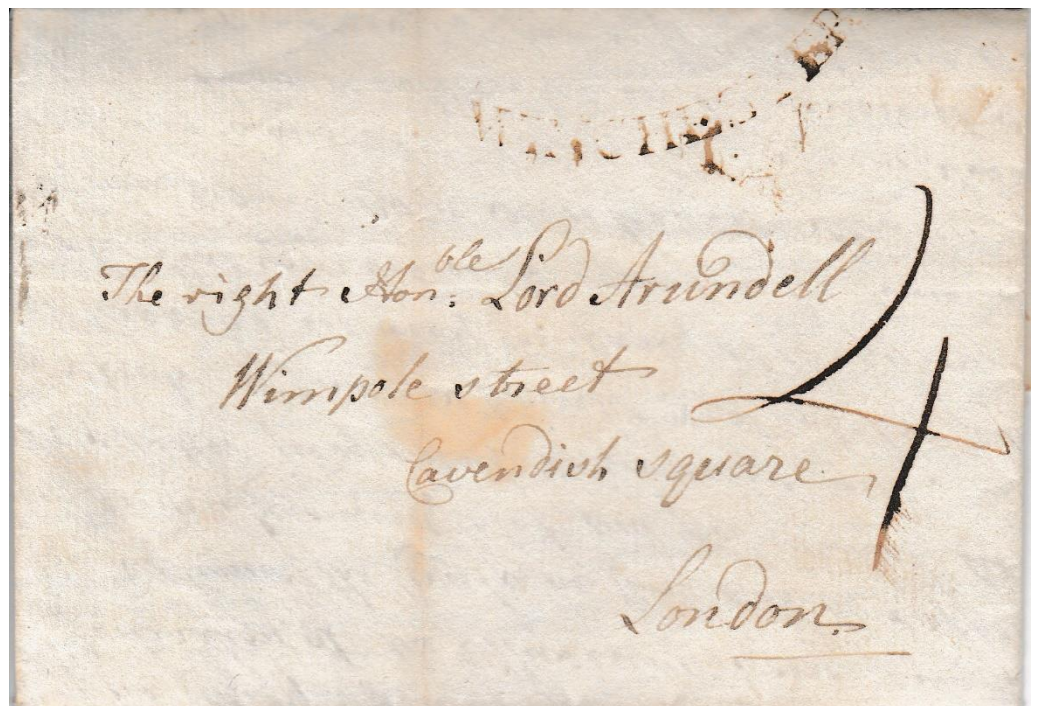 WINCHESTER
The right Hon.ble Lord Arundell
4
Wimpole street
Cavendish square
London.